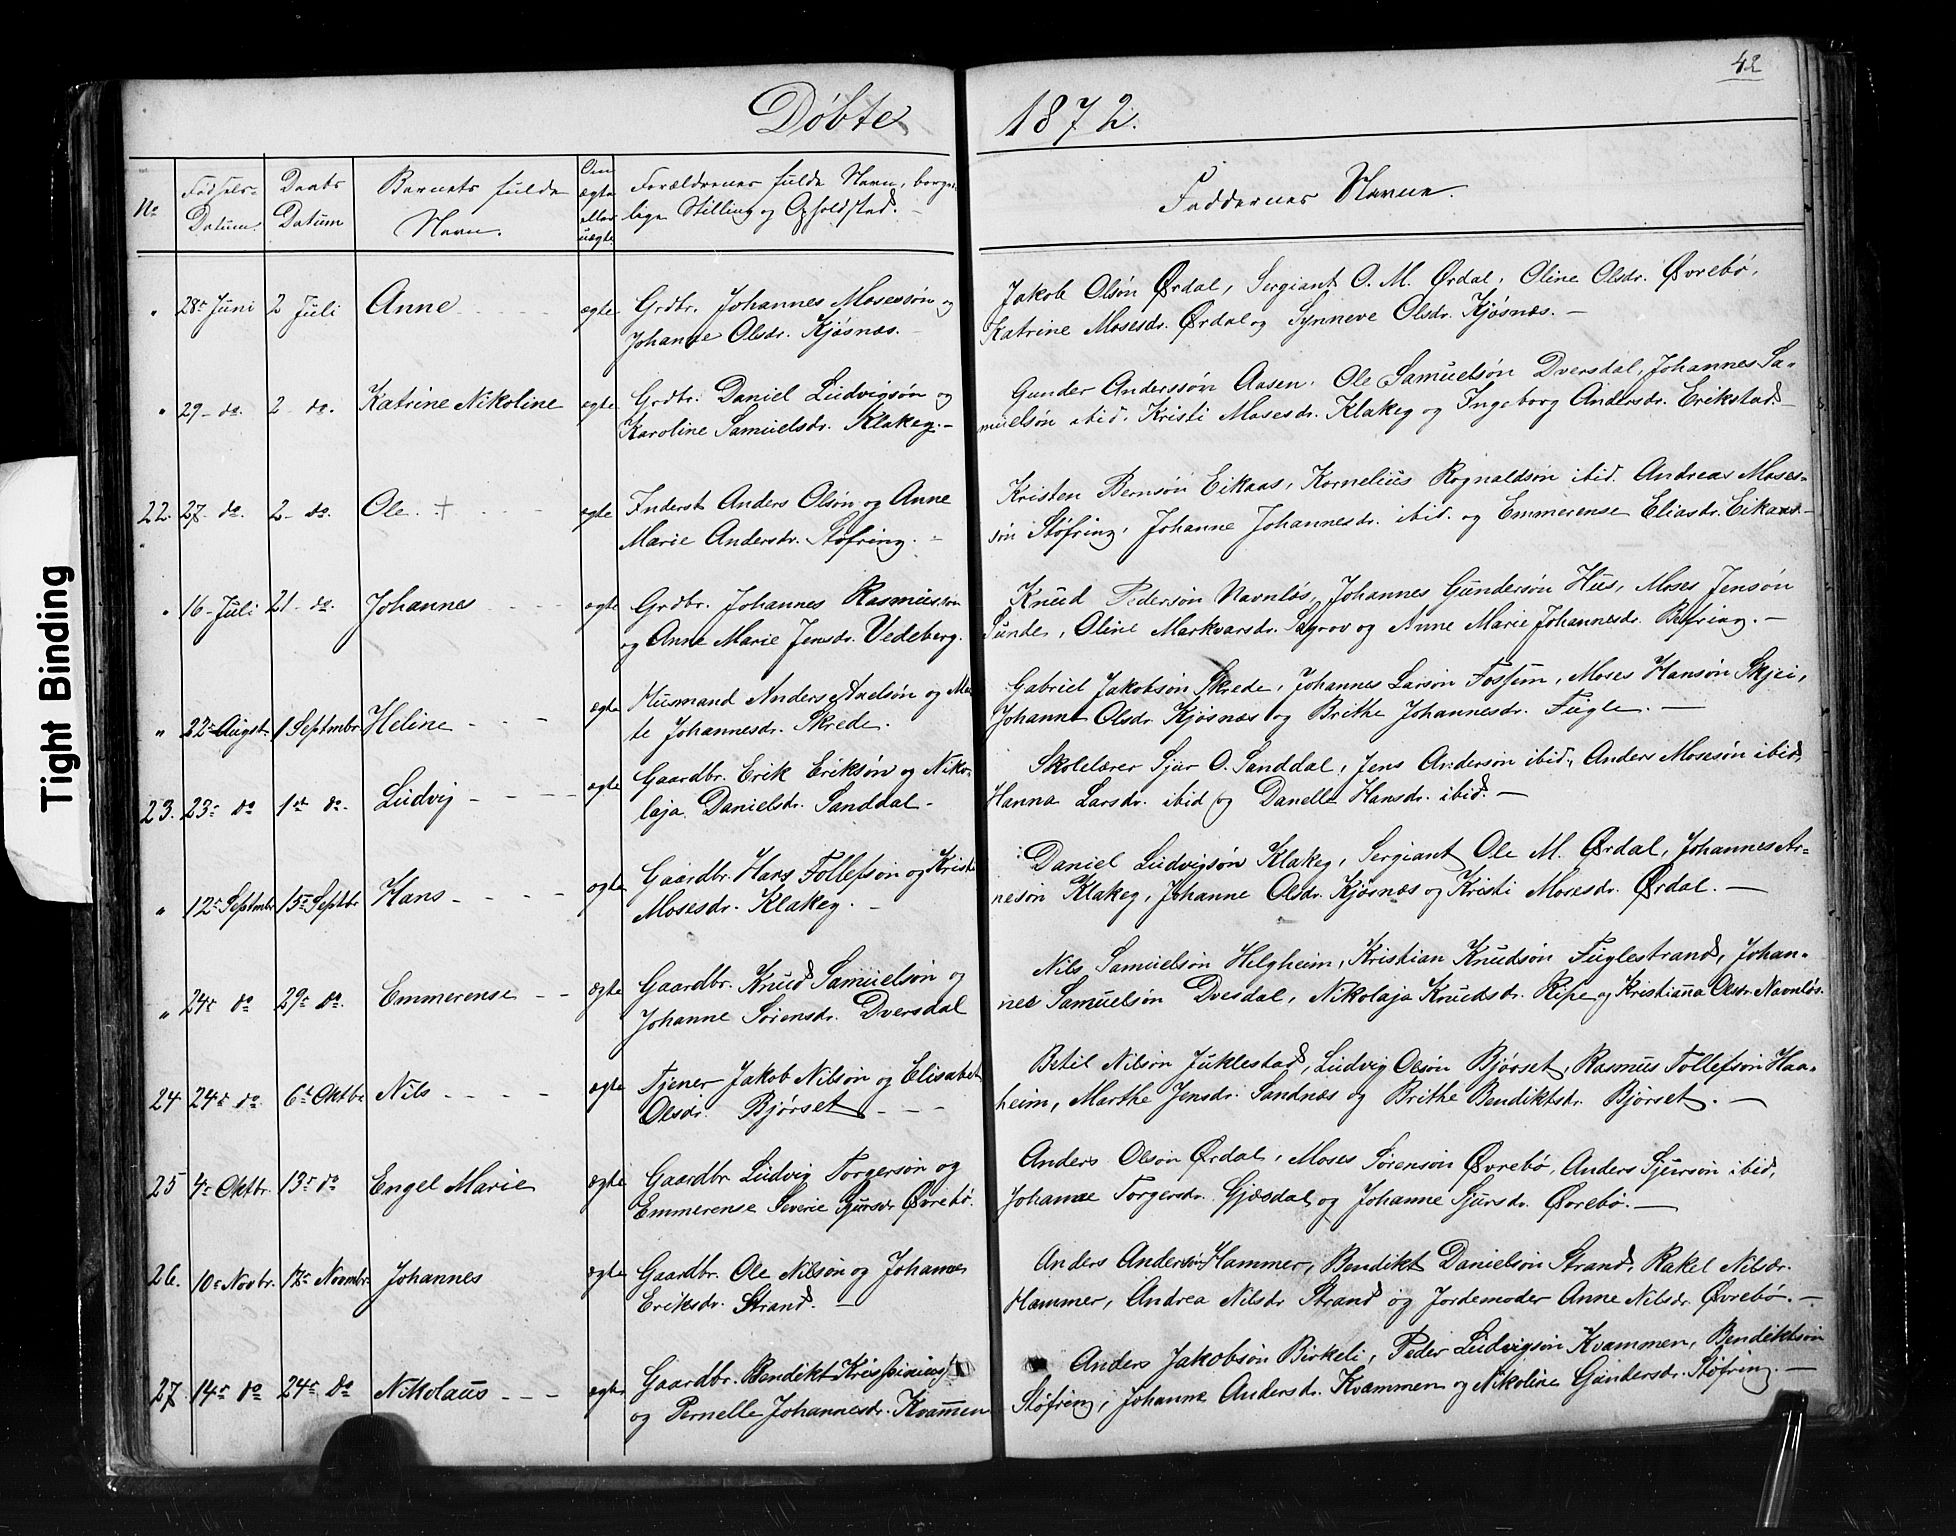 42
Døbte 1872.
No
Fødsels-
Datum.
Daabs
Datum
Barnets fulde
Navn.
Om
ægte
eller
uægte
Forældrenes fulde Navn, borger-
lige Stilling og Opholdsted.
Faddernes Navne.
" 28de Juni 2 Juli Anne ægte Grdbr. Johannes Mosessøn og
Johanne Olsdr. Kjøsnæs.
Jakob Olsøn Ørdal, Sergiant O. M. Ørdal, Oline Olsdr. Øvrebø,
Katrine Mosesdr. Ørdal og Synneve Olsdr. Kjøsnæs. —
" 29 - do. 2 - do. Katrine Nikoline ægte Grdbr. Daniel Ludvigsøn og
Karoline Samuelsdr. Klakeg. -
Gunder Anderssøn Aasen, Ole Samuelsøn Dversdal, Johannes Sa-
muelsøn ibid. Kristi Mosesdr. Klakeg og Ingeborg Andersdr. Erikstad
22. 27 do. 2 - do. Ole. + ægte Inderst Anders Olsøn og Anne
Marie Andersdr. Støfring. -
Kristen Bernsøn Eikaas, Kornelius Rognaldsøn ibid. Andreas Moses-
søn Støfring, Johanne Johannesdr. ibid. og Emmerense Eliasdr. Eikaas.
" 16 - Juli 21 - do. Johannes ægte Grdbr. Johannes Rasmussøn
og Anne Marie Jensdr. Vedeberg.
Knud Pedersøn Navnløs, Johannes Gundersøn Hus, Moses Jensøn
Sunde, Oline Markvarsdr. Sægrov og Anne Marie Johannesdr. Befring. —
" 22de August 1 Septmbr Heline ægte Husmand Anders Axelsøn og Mar-
te Johannesdr. Skrede.
Gabriel Jakobsøn Skrede, Johannes Larsøn Fossem, Moses Hansøn Skjei,
Johanne Olsdr. Kjøsnæs og Brithe Johannesdr. Fugle. —
23. 23de do 1st do. Ludvig ægte Gaardbr. Erik Eriksøn og Niko-
laja Danielsdr. Sanddal -
Skolelærer Sjur O. Sanddal, Jens Andersøn ibid, Anders Mosesøn ibid,
Hanna Larsdr. ibid og Danelle Hansdr. ibid. —
" 12te Septmbr 15de Septbr Hans ægte Gaardbr. Hans Tollefsøn og Kristi
Mosesdr. Klakeg. -
Daniel Ludvigsøn Klakeg, Sergiant Ole M. Ørdal, Johannes Ar-
nesøn Klakeg, Johanne Olsdr. Kjøsnæs og Kristi Mosesdr. Ørdal. —
" 24de do 29de do. Emmerense ægte Gaardbr. Knud Samuelsøn og
Johanne Sørensdr. Dversdal
Nils Samuelsøn Helgheim, Kristian Knudsøn Fuglestrand, Johan-
nes Samuelsøn Dvesdal, Nikolaja Knudsdr. Ripe og Kristianna Olsdr. Navnløs.
24 24de do. 6te Oktbr Nils ægte Tjener Jakob Nilsøn og Elisabet
Olsdr. Bjørset
Betil Nilsøn Juklestad, Ludvig Olsøn Bjørset, Rasmus Tollefsøn Haa-
heim, Marthe Jensdr. Sandnæs og Brithe Bendiktsdr. Bjørset. —
25 4de Oktbr. 13de do Engel Marie ægte Gaardbr. Ludvig Torgersøn og
Emmerense Severie Sjursdr Øvrebø.
Anders Olsøn Ørdal, Moses Sørensøn Øvrebø, Anders Sjursøn ibid,
Johanne Torgersdr. Gjesdal og Johanne Sjursdr. Øvrebø. —
26. 10de Novbr. 17de Novmbr. Johannes ægte Gaardbr. Ole Nilsøn og Johanne
Eriksdr. Strand. —
Anders Andersøn Hammer, Bendikt Danielsøn Strand, Rakel Nilsdr.
Hammer, Andrea Nilsdr Strand og Jordemoder Anne Nilsdr. Øvrebø. —
27. 14de do 24de do Nikolaus ægte Gaardbr. Bendikt
og Pernelle Johannesdr. Kvammen
Anders Jakobsøn Birkeli, Peder Ludvigsøn Kvammen, Bendiktsøn
Støfring, Johanne Andersdr. Kvammen og Nikoline Gundersdr. Støfring. —
Tight Binding